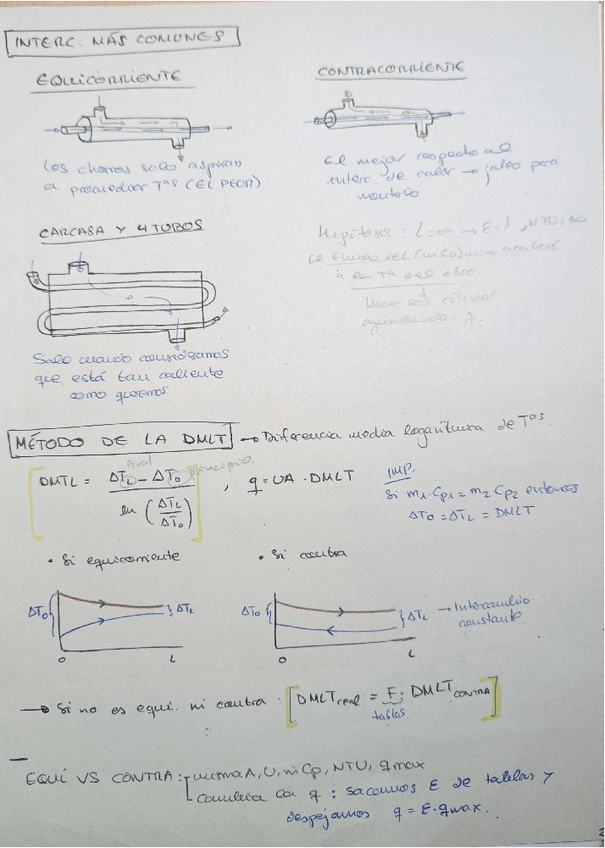 INTERC. MÁS COMUNES
EQUICORRIENTE
Los chorros solo aspiran
a promediar Tªs. (EL PEOR)
CONTRACORRIENTE
El mejor respecto al
interc. de calor → jaleo para
montarlo
Hipótesis: L=∞ → E=1, NTU=∞
El fluido del (m·Cp)min acabará
a la Tª del otro
Hacer los cálculos
igualando q.
CARCASA Y 4 TUBOS
Solo cuando consideramos
que está tan caliente
como queremos
MÉTODO DE LA DMLT → Diferencia media logarítmica de Tªs.
final principio
DMTL = (ΔTL - ΔT0) / ln (ΔTL/ΔT0) , q = UA · DMLT
IMP.
Si m1·Cp1 = m2 Cp2 entonces
ΔT0 = ΔTL = DMLT
• Si equicorriente
• Si contra
ΔT0 ΔTL
0 L
ΔT0 ΔTL → Intercambio
constante
0 L
→ Si no es equi. ni contra: [DMLTreal = F · DMLTCONTRA]
tablas
EQUI VS CONTRA: misma A, U, ṁCp, NTU, qmax
Cambia la q : sacamos E de tablas y
despejamos q = E·qmax.